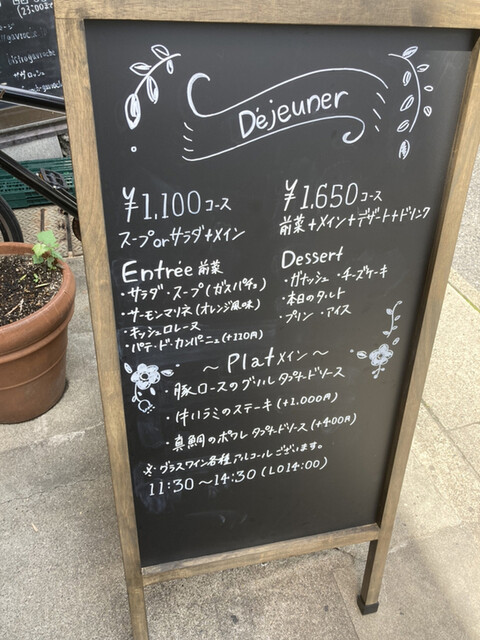 (23:00まで
Déjeuner
¥1,100コース
スープorサラダ+メイン
¥1,650コース
前菜+メイン+デザート+ドリンク
Entrée 前菜
・サラダ・スープ(ガスパチョ)
・サーモンマリネ(オレンジ風味)
・キッシュロレーヌ
・パテ・ド・カンパーニュ(+220円)
Dessert
・ガナッシュ・チーズケーキ
・本日のタルト
・プリン ・アイス
～Platメイン～
・豚ロースのグリル タプナードソース
・牛ハラミのステーキ(+1,000円)
・真鯛のポワレ タプナードソース(+400円)
※グラスワイン各種アルコールございます。
11:30～14:30(LO14:00)